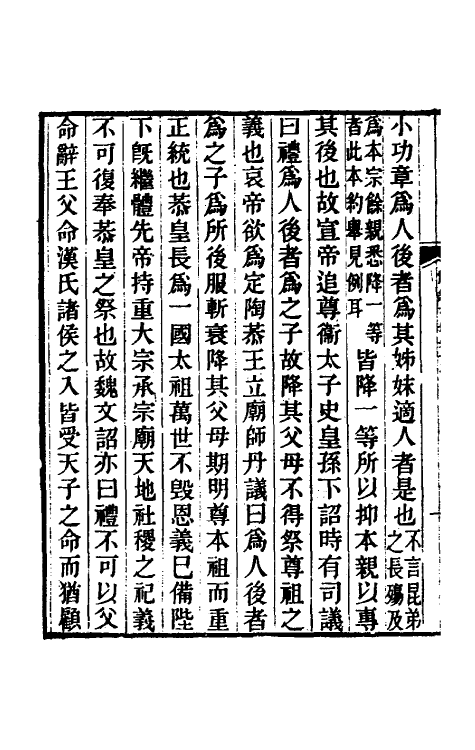 小功章爲人後者爲其姊妹適人者是也不言昆弟之長殤及
爲本宗餘親悉降一等者此本約舉見例耳皆降一等所以抑本親以專
其後也故宣帝追尊衞太子史皇孫下詔時有司議
曰禮爲人後者爲之子故降其父母不得祭尊祖之
義也哀帝欲爲定陶恭王立廟師丹議曰爲人後者
爲之子爲所後服斬衰降其父母期明尊本祖而重
正統也恭皇長爲一國太祖萬世不毀恩義已備陛
下旣繼體先帝持重大宗承宗廟天地社稷之祀義
不可復奉恭皇之祭也故魏文詔亦曰禮不可以父
命辭王父命漢氏諸侯之入皆受天子之命而猶顧